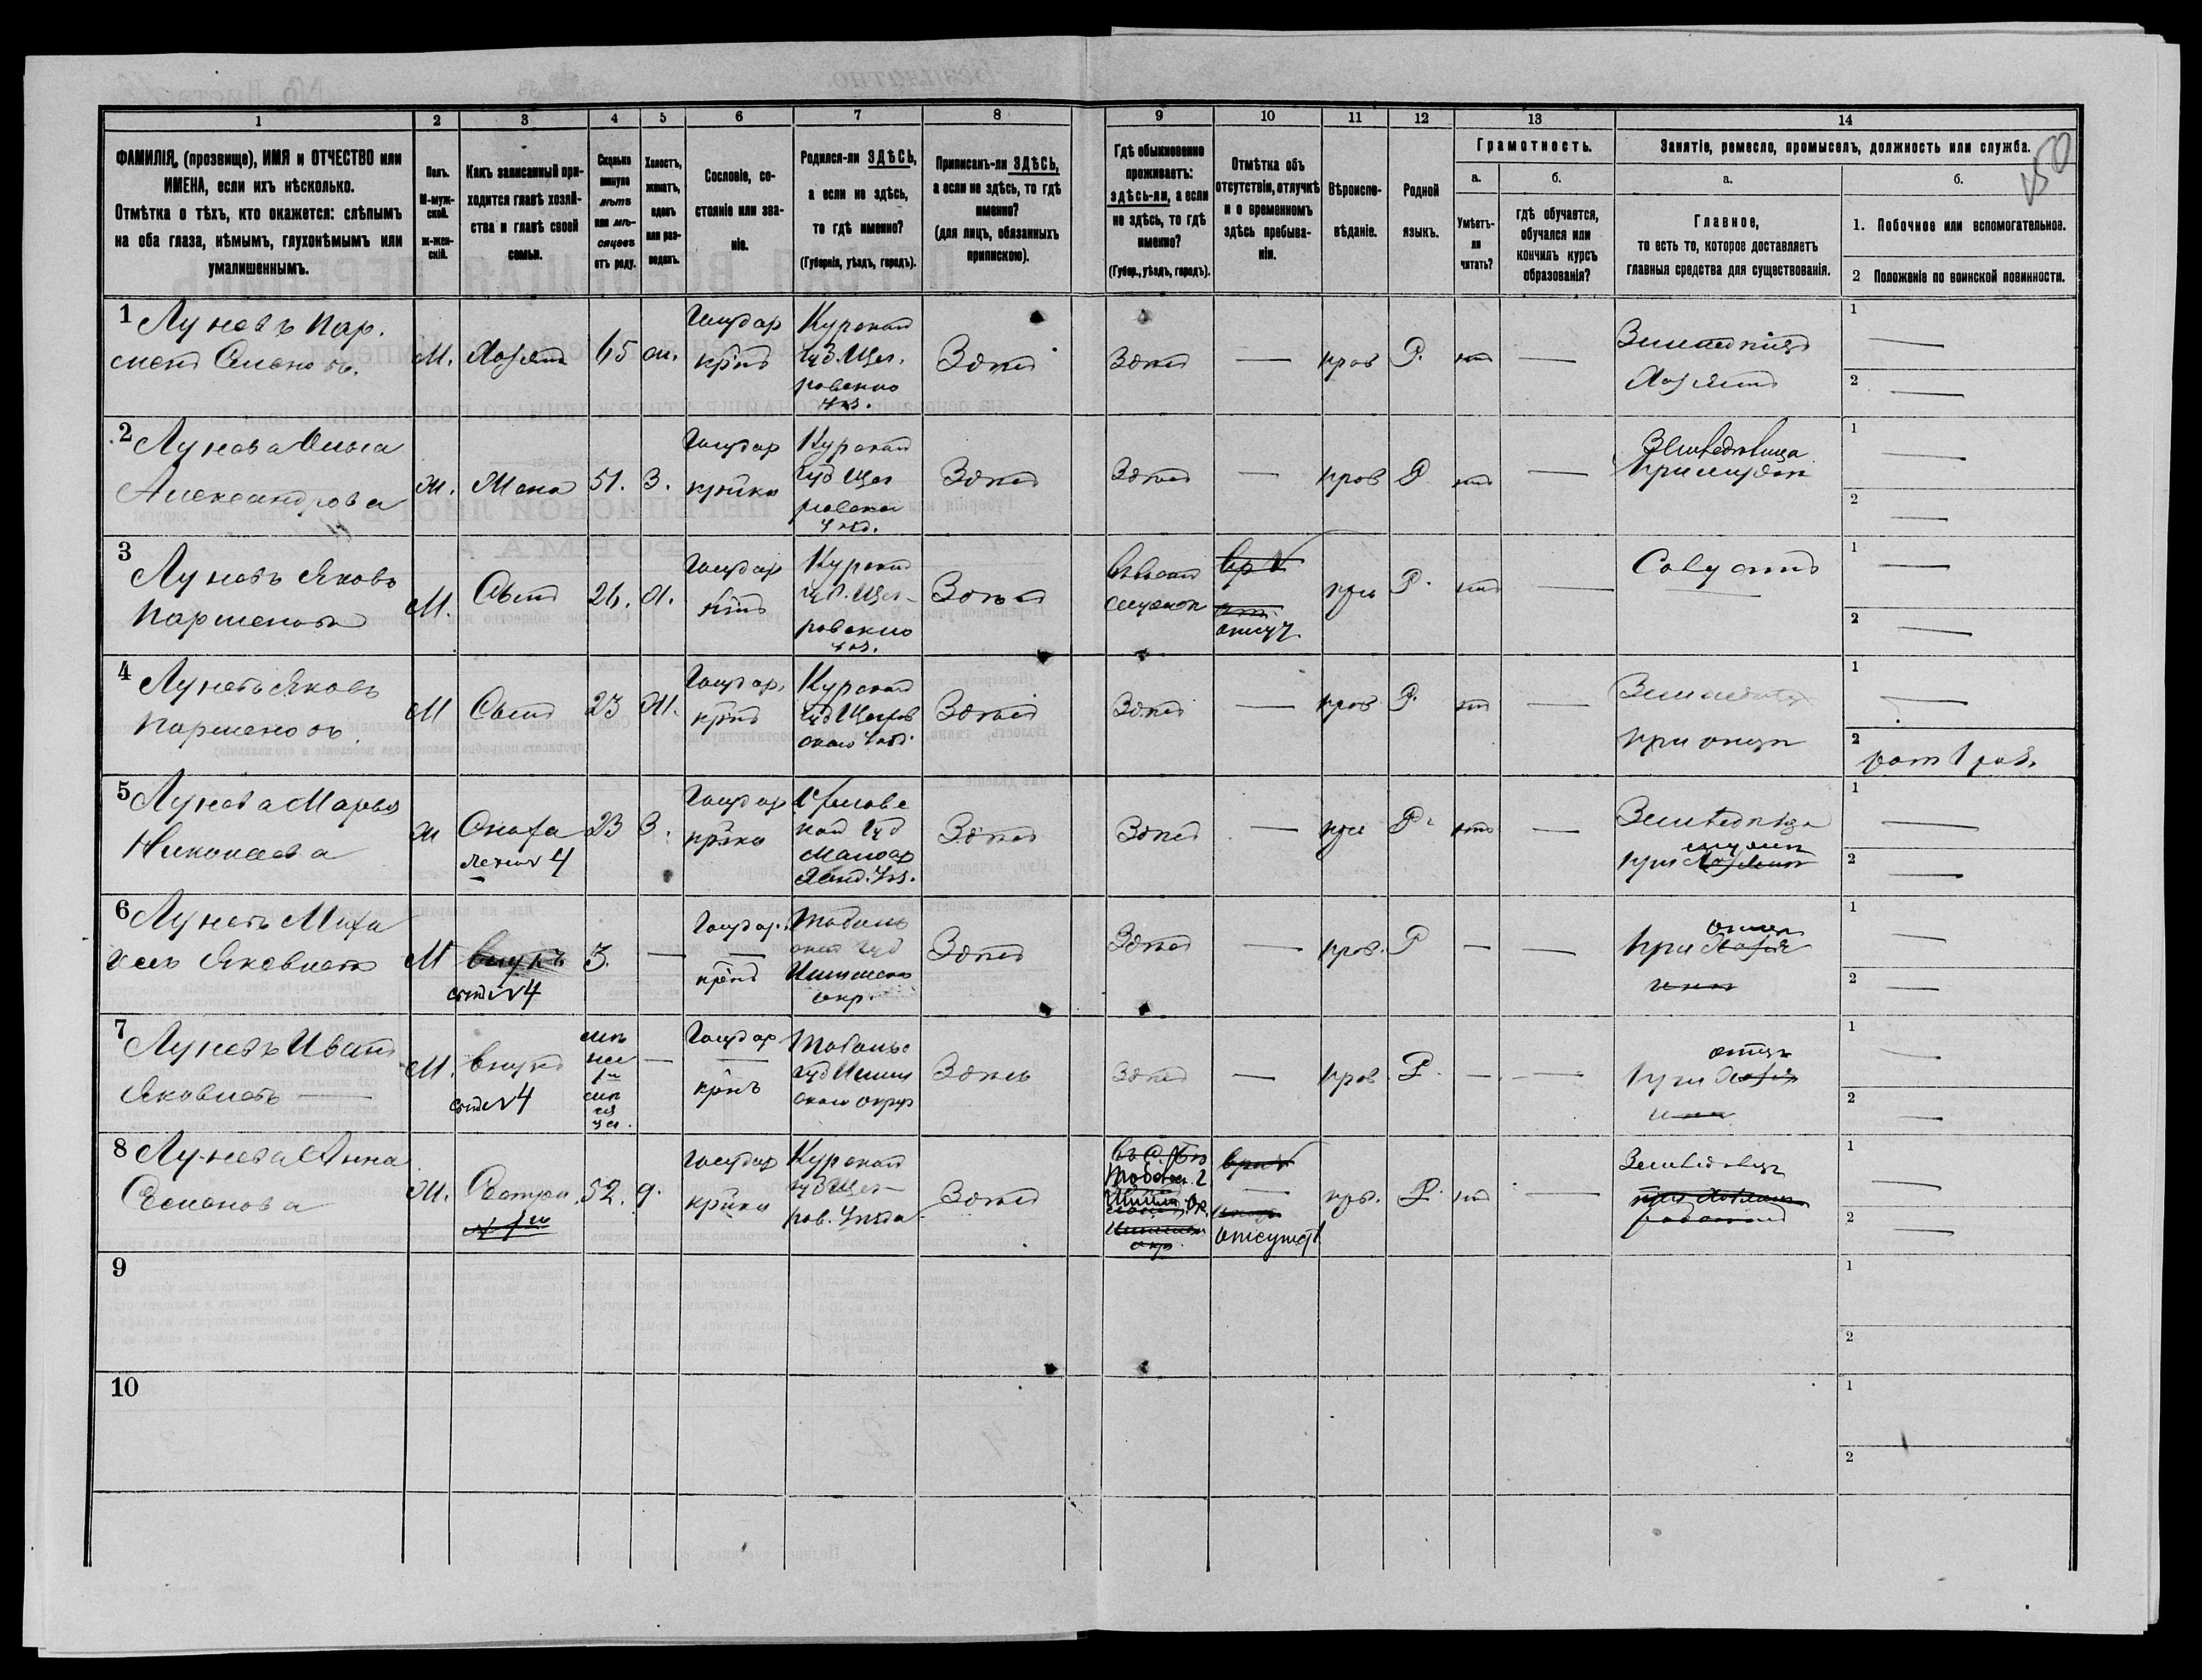 1 2 3 4 5 6 7 8 9 10 11 12 13 14
ФАМИЛІЯ, (прозвище), ИМЯ и ОТЧЕСТВО или
ИМЕНА, если ихъ нѣсколько.
Отмѣтка о тѣхъ, кто окажется: слѣпымъ
на оба глаза, нѣмымъ, глухонѣмымъ или
умалишеннымъ.
Полъ.
М-муж-
ской.
ж-жен-
скій.
Какъ записанный при-
ходится главѣ хозяй-
ства и главѣ своей
семьи.
Сколько
минуло
лѣтъ
или мѣ-
сяцевъ
отъ роду.
Холостъ,
женатъ,
вдовъ
или раз-
веденъ.
Сословіе, со-
стояніе или зва-
ніе.
Родился-ли ЗДѢСЬ,
а если не здѣсь,
то гдѣ именно?
(Губернія, уѣздъ, городъ).
Приписанъ-ли ЗДѢСЬ,
а если не здѣсь, то гдѣ
именно?
(для лицъ, обязанныхъ
припискою).
Гдѣ обыкновенно
проживаетъ:
здѣсь-ли, а если
не здѣсь, то гдѣ
именно?
(Губер., уѣздъ, городъ).
Отмѣтка объ
отсутствіи, отлучкѣ
и о временномъ
здѣсь пребыва-
ніи.
Вѣроиспо-
вѣданіе.
Родной
языкъ.
Грамотность.
а.
Умѣетъ-
ли
читать?
б.
гдѣ обучается,
обучался или
кончилъ курсъ
образованія?
Занятіе, ремесло, промыселъ, должность или служба.
а.
Главное,
то есть то, которое доставляетъ
главныя средства для существованія.
б.
1. Побочное или вспомогательное.
2 Положеніе по воинской повинности.
150
1 Луневъ Пар.
менъ Семеновъ.
М. Хозяинъ 65 ж.
Государ
кр̃нъ
Курской
губ. Щиг.
ровскаго
уѣз.
Здѣсь Здѣсь — пров Р. нѣтъ —
Земледѣлецъ
Хозяинъ
1 —
2 —
2 Лунева
Александрова
ж. Жена 51. З.
Государ
Курской
губ Щиг
ровска
уѣзд.
Здѣсь Здѣсь — пров Р нѣтъ —
при мужѣ
1 —
2 —
3 Луневъ Яковъ
Парменовъ
М. Сынъ 26. Х.
Государ
Курской
губ. Щиг-
ровскаго
уѣз.
Здѣсь
отсут
Р. нѣтъ —
1 —
2 —
4 Луневъ Яковъ
Парменовъ.
М Сынъ 23 Ж.
Государ.
кр̃нъ
Курской
губ Щигров
скаго уѣзд.
Здѣсь Здѣсь — пров Р. нѣтъ —
при отцѣ
1 —
2 рат 1 раз.
5 Лунева Марья
Николаева
ж Сноха
жена № 4
23 З.
Государ
губ
уѣз.
Здѣсь Здѣсь — Р. нѣтъ —
при мужѣ
1 —
2 —
6 Луневъ Миха
илъ Яковлевъ
М внукъ
сынъ № 4
3. —
Государ.
—
кр̃нъ
Тоболь
ской губ
Ишимска
окр.
Здѣсь Здѣсь — пров. Р — —
при отцѣ
1 —
2 —
7 Луневъ Иванъ
Яковлевъ —
М. внукъ
сынъ № 4
—
Государ
—
кр̃нъ
Тобольс
губ Ишим
скаго округ
Здѣсь Здѣсь — пров. Р. — —
при отцѣ
1 —
2 —
8 Лунева Анна
Семенова
Ж. Сестра
52. д.
Государ
Курской
губ Щиг-
ров. Уѣзда
Здѣсь
Тобольск. г
отсутст
Р. нѣтъ —
1 —
2 —
9
1
2
10
1
2